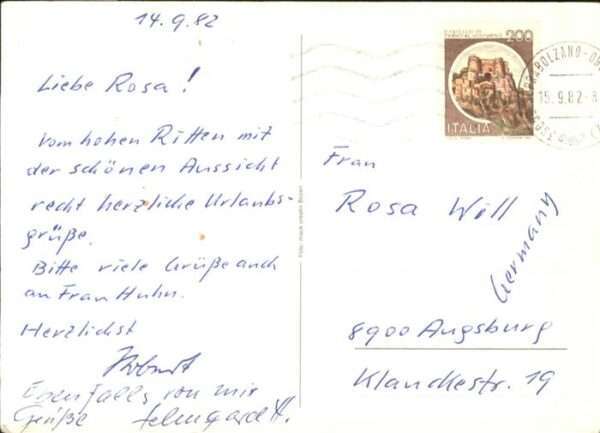 14.9.82
Liebe Rosa!
Vom hohen Ritten mit
der schönen Aussicht
recht herzliche Urlaubs-
grüße.
Bitte viele Grüße auch
an Frau Huhn.
Herzlichst
Ebenfalls von mir
Grüße H.
200
ITALIA
BOLZANO
15.9.82
Frau
Rosa Will
Germany
8900 Augsburg
Klauckestr. 19